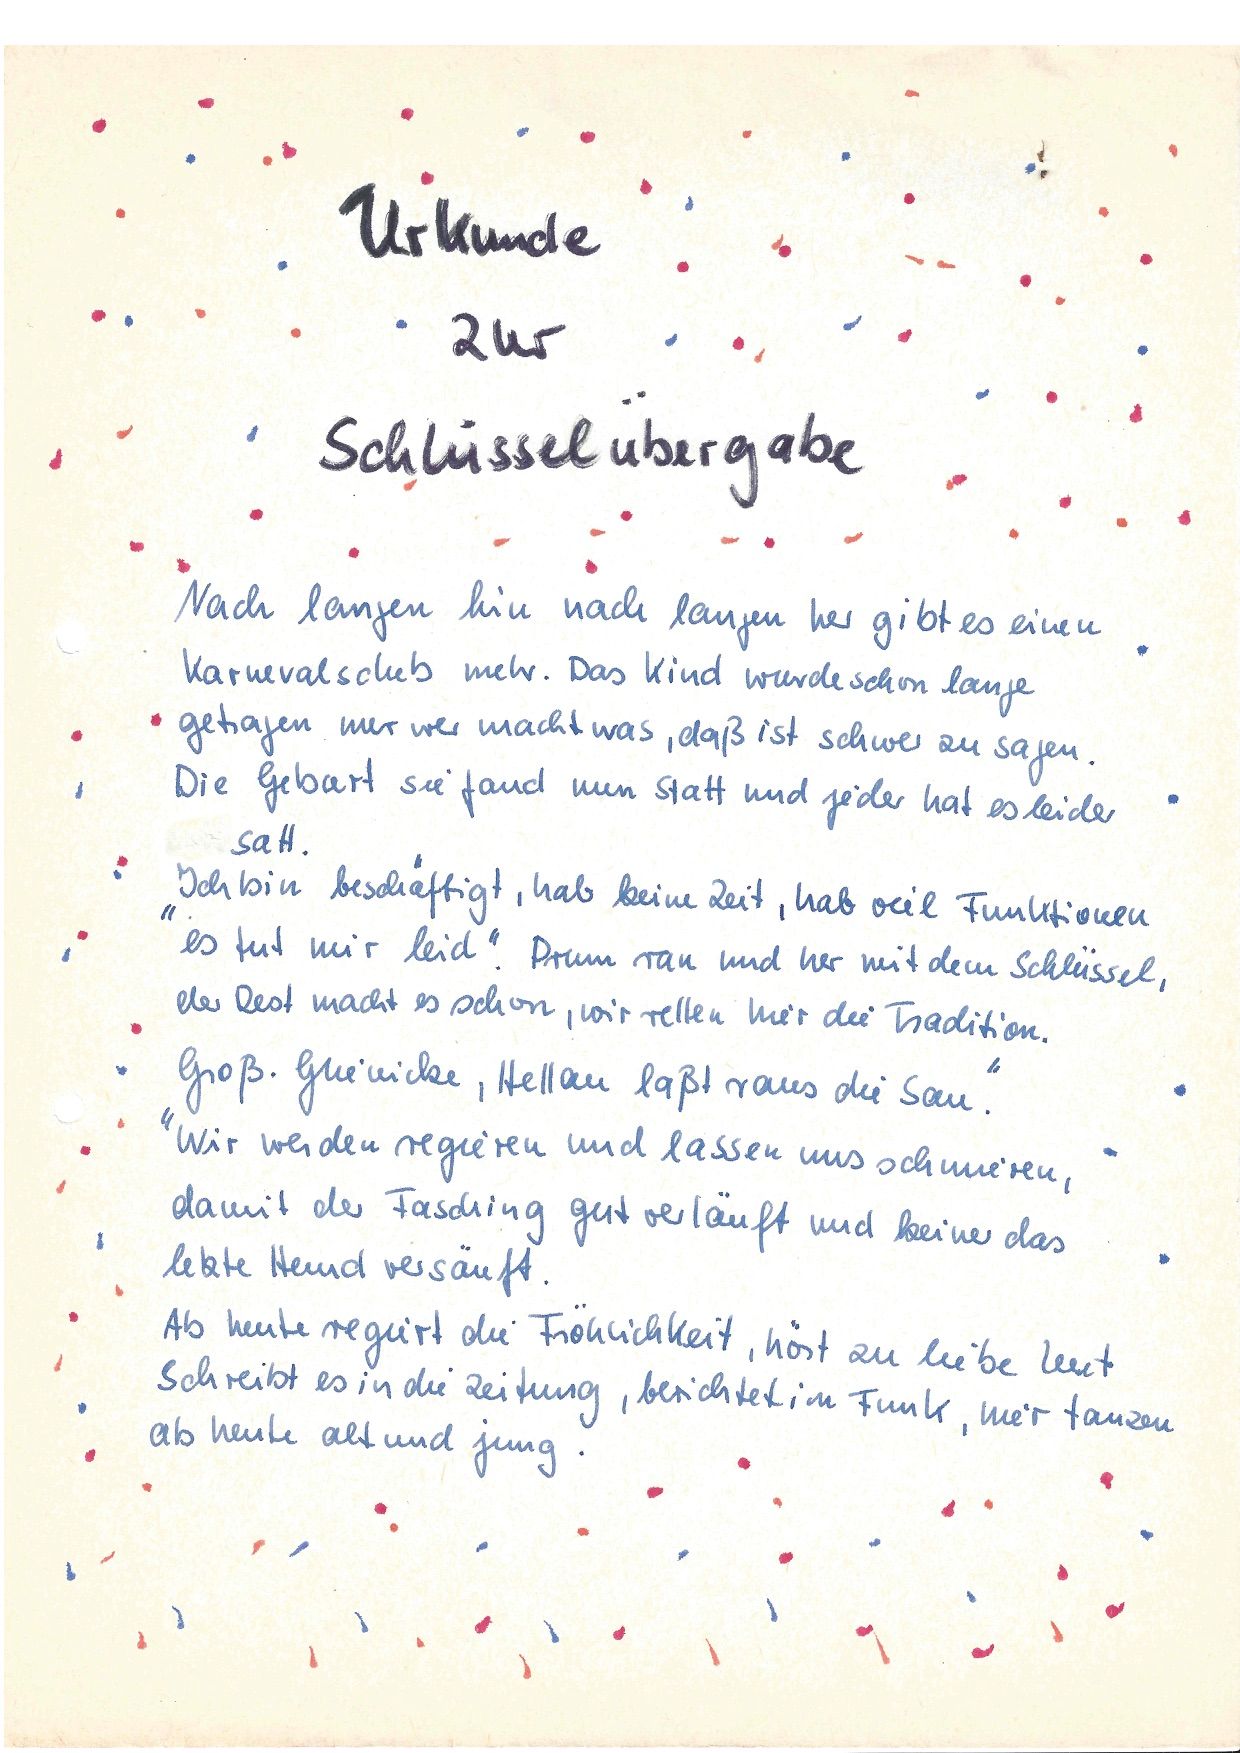 Urkunde
zur
Schlüsselübergabe
Nach langen hin nach langen her gibt es einen
Karnevalsclub mehr. Das Kind wurde schon lange
getragen nur wer macht was, daß ist schwer zu sagen.
Die Geburt sie fand nun statt und jeder hat es leider
satt.
"Ich bin beschäftigt, hab keine Zeit, hab viel Funktionen
es tut mir leid". Drum ran und her mit dem Schlüssel,
der Rest macht es schon, wir retten hier die Tradition.
Groß. Glienicke, Hellau laßt raus die Sau."
"Wir werden regieren und lassen uns schmieren,
damit der Fasching gut verläuft und keiner das
letzte Hemd versäuft.
Ab heute regiert die Fröhlichkeit, höst zu liebe Leut
Schreibt es in die Zeitung, berichtet im Funk, hier tanzen
ab heute alt und jung.